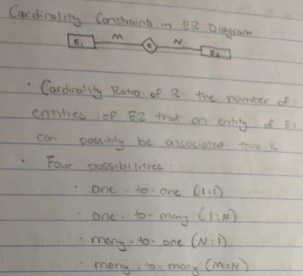 Cardinality Constraints in ER Diagram
E1 M R N E2
· Cardinality Ratio of R: the number of
entities of E2 that an entity of E1
can possibly be associated thru R
· Four possibilities:
· one-to-one (1:1)
· one-to-many (1:N)
· many-to-one (N:1)
· many-to-many (M:N)